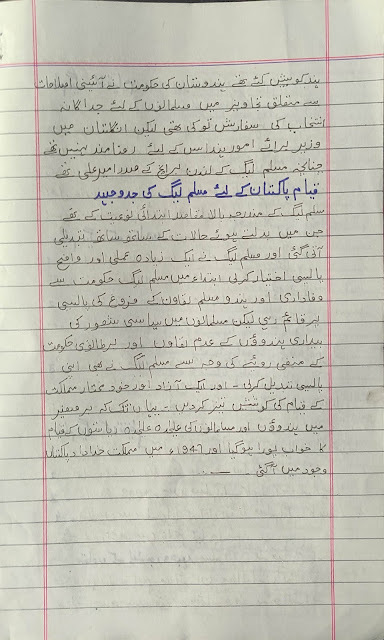 ہند کو پیش کئے تھے ہندوستان کی حکومت نے آئینی اصلاحات
سے متعلق تجاویز میں مسلمانوں کے لئے جداگانہ
انتخاب کی سفارش تو کی تھی لیکن انگلستان میں
وزیر برائے امور ہند اس کے لئے رضا مند نہیں تھے
چنانچہ مسلم لیگ کے لندن برانچ کے صدر امیر علی تھے
قیام پاکستان کے لئے مسلم لیگ کی جدوجہد
مسلم لیگ کے مندرجہ بالا مقاصد ابتدائی نوعیت کے تھے
جن میں بدلتے ہوئے حالات کے ساتھ ساتھ تبدیلی
آتی گئی اور مسلم لیگ نے ایک زیادہ عملی اور واضح
پالیسی اختیار کرلی ابتداء میں مسلم لیگ حکومت سے
وفاداری اور ہندو مسلم تعاون کے فروغ کی پالیسی
پر قائم رہی لیکن مسلمانوں میں سیاسی شعور کی
بیداری ہندوؤں کے عدم تعاون اور برطانوی حکومت
کے منفی رویئے کی وجہ سے مسلم لیگ نے بھی اپنی
پالیسی تبدیل کرلی - اور ایک آزاد اور خود مختار مملکت
کے قیام کی کوشش تیز کردیں - یہاں تک کہ برصغیر
میں ہندوؤں اور مسلمانوں کی علیحدہ علیحدہ ریاستوں کے قیام
کا خواب پورا ہوگیا اور 1947ء میں مملکت خداداد پاکستان
وجود میں آگئی